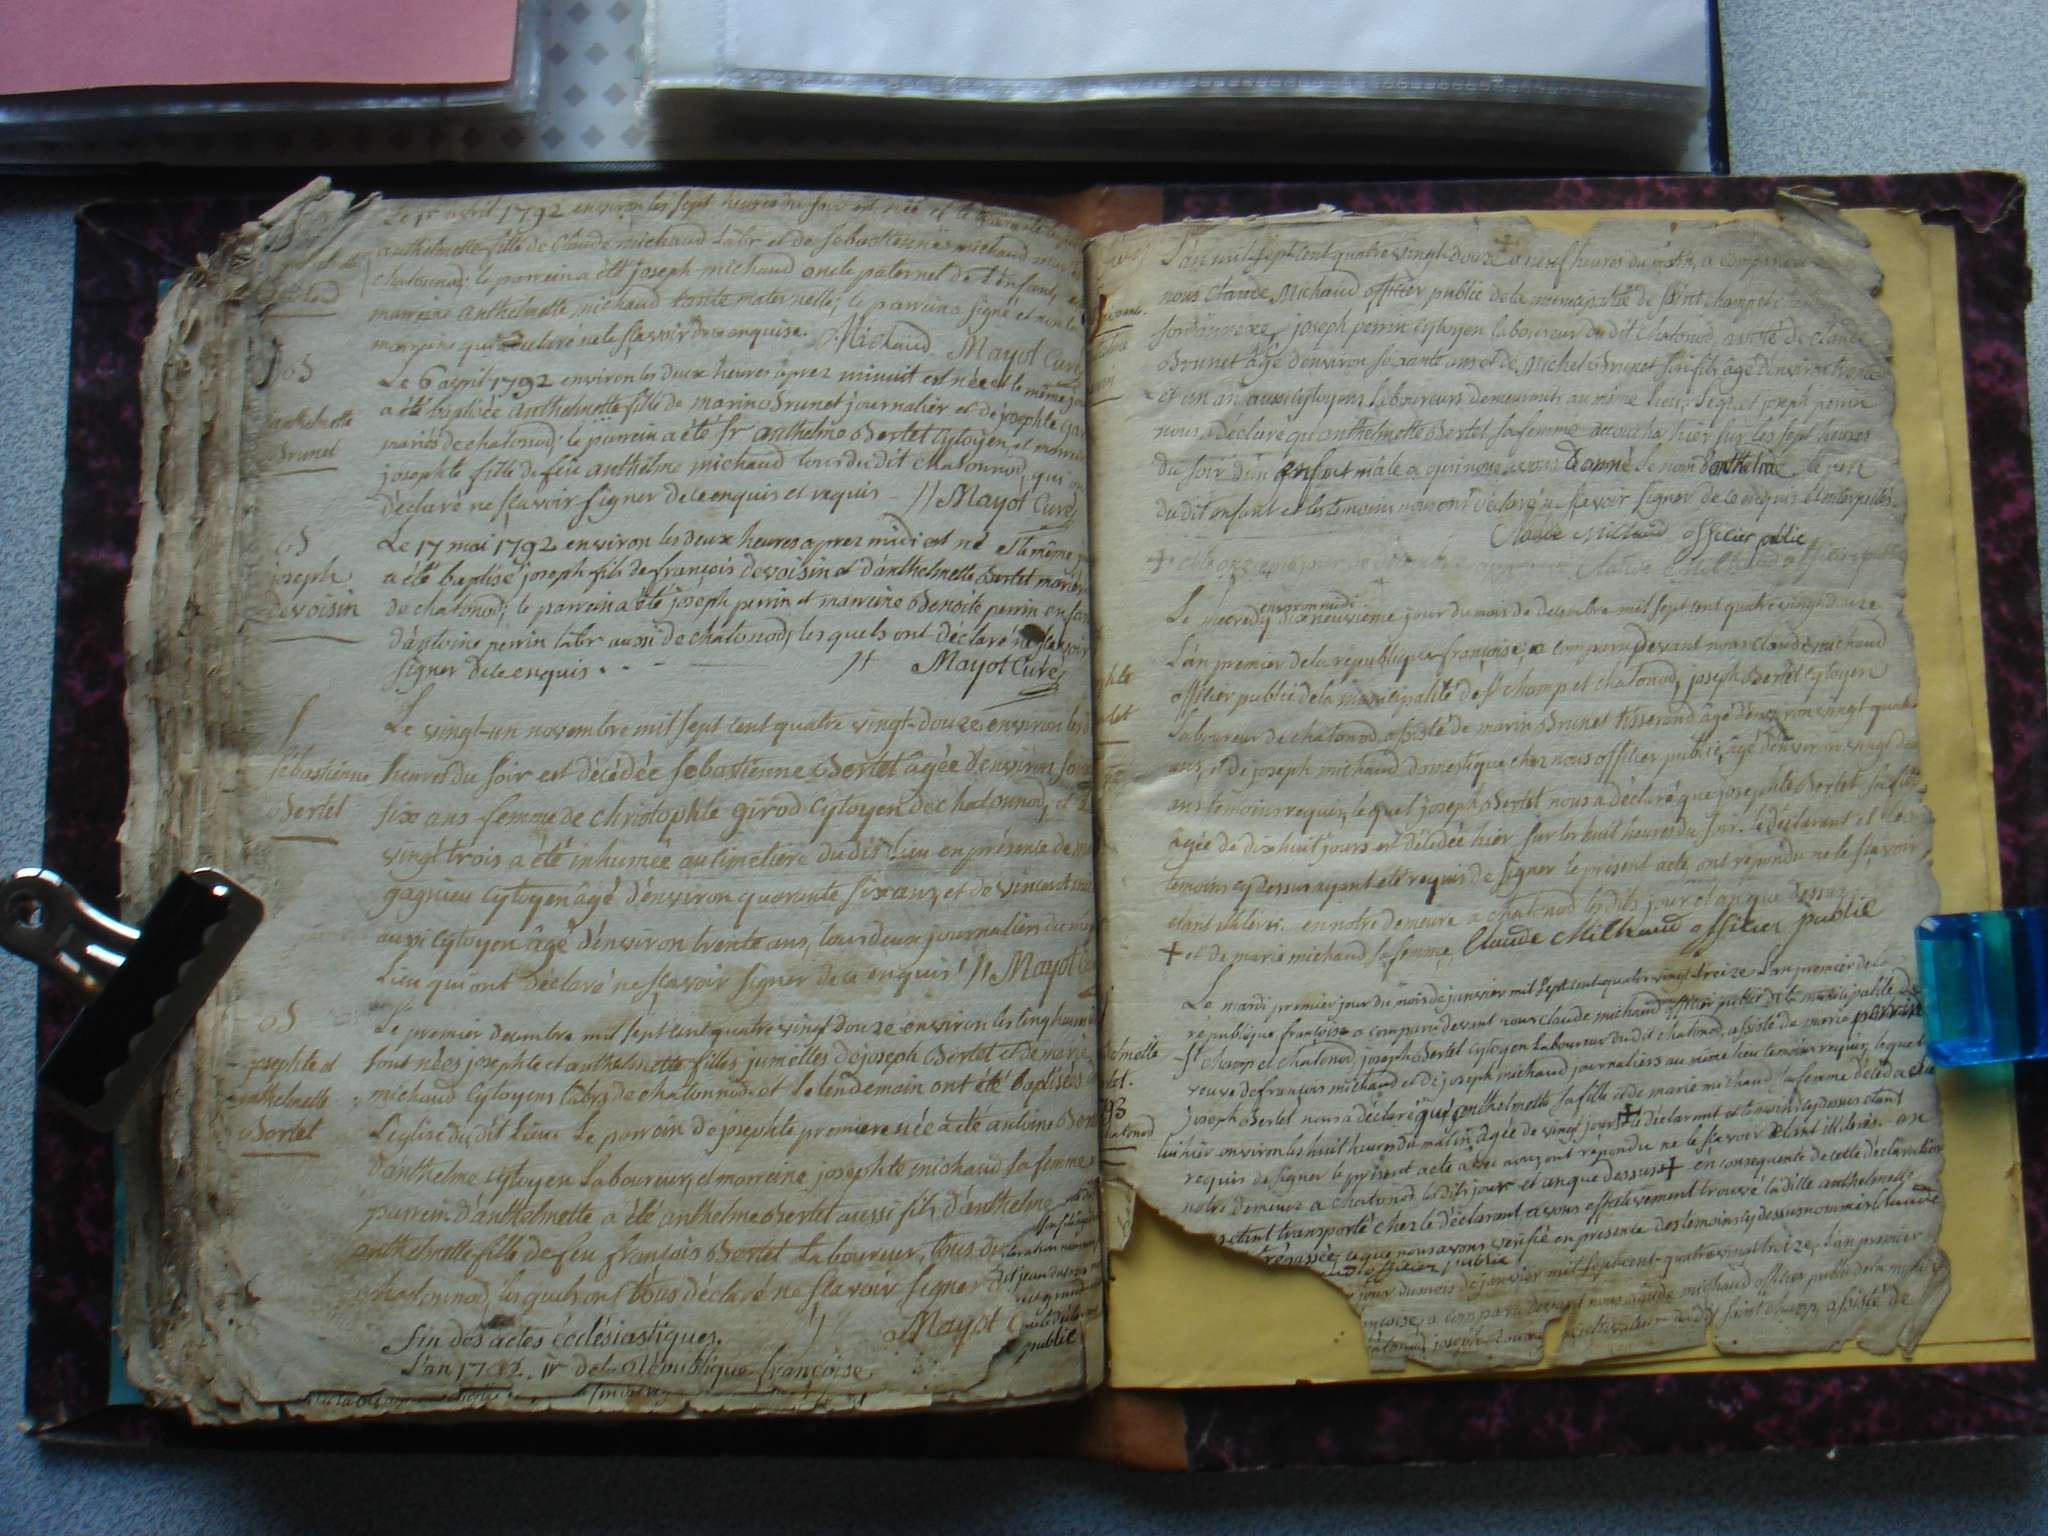 Le 1r avril 1792 environ les sept heures du soir est née et le
anthelmette fille de Claude michaud labr et de Sebastienne michaud
chatonod; le parrein a été joseph michaud oncle paternel de l'enfant, et
marreine anthelmette michaud tante maternelle; le parrein a signé et non la
marreine qui a déclaré ne le sçavoir de ce enquise. Michaud Mayot Curé
bs
anthelmette
Brunet
Le 6 avril 1792 environ les deux heures aprez minuit est née et le même jour
a été baptisée anthelmette fille de marin Brunet journalier et de josephte
mariés de chatonod; le parrein a été sr anthelme Bertet Cytoyen, et marreine
josephte fille de feu anthelme michaud tous du dit chatonnod, qui ont
déclaré ne sçavoir signer de ce enquis et requis // Mayot Curé
bs
joseph
devoisin
Le 17 mai 1792 environ les deux heures aprez midi est né et le même
a été baptisé joseph fils de françois devoisin et d'anthelmette Bertet mariés
de chatonod; le parrein a été joseph perrin et marreine Benoite perrin
d'antoine perrin labr aussi de chatonod, les quels ont déclaré ne sçavoir
signer de ce enquis. // Mayot Curé
S
sebastienne
Bertet
Le vingt-un novembre mil sept cent quatre vingt-douze environ les
heures du soir est décédée sebastienne Bertet âgée d'environ
six ans femme de christophle girod Cytoyen de chatonnod, et le
vingt trois a été inhumée au cimetiere du dit lieu en présence de
gagnieu Cytoyen âgé d'environ quarante six ans, et de vincent
aussi Cytoyen âgé d'environ trente ans, tous deux journaliers du même
Lieu qui ont déclaré ne sçavoir signer de ce enquis // Mayot
bs
josephte et
anthelmette
Bertet
Le premier decembre mil sept cent quatre vingt douze environ les cinq heures
sont nées josephte et anthelmette filles jumelles de joseph Bertet et de marie
michaud Cytoyens labrs de chatonnod et le lendemain ont été baptisées
L'église du dit Lieu. Le parrein de josephte premiere née a été antoine
d'anthelme cytoyen Laboureur, et marreine josephte michaud sa femme
parrein d'anthelmette a été anthelme Bertet aussi fils d'anthelme
anthelmette fille de feu françois Bertet Laboureur, tous du
chatonnod, les quels ont tous déclaré ne sçavoir signer
Mayot
public
fin des actes écclésiastiques.
L'an 1792. 1r de la République françoise
L'an mil sept cent quatre vingt douze + a neuf heures du matin, a comparu
nous Claude Michaud officier public de la municipalité de saint champ et
joseph perrin Cytoyen laboureur du dit Chatonod, assisté de Claude
Brunet âgé d'environ soixante ans et de Michel Brunet son fils âgé d'environ trente
et un an aussi Cytoyens Laboureurs demeurants au même lieu, Lequel joseph perrin
nous a déclaré qu'anthelmette Bertet sa femme accoucha hier sur les sept heures
du soir d'un enfant mâle a qui nous avons donné le nom d'anthelme. le pere
du dit enfant et les temoins nous ont déclaré ne sçavoir signer de ce enquis et interpellés.
Claude Michaud officier public
environ midi
Le mecredy dix neuvieme jour du mois de decembre mil sept cent quatre vingt douze
L'an premier de la république françoise, a comparu devant nous Claude michaud
officier public de la municipalité de st champ et chatonod, joseph Bertet Cytoyen
Laboureur de chatonod, assisté de marin Brunet tisserand âgé d'environ vingt quatre
ans, et de joseph michaud domestique chez nous officier public, âgé d'environ vingt deux
ans temoins requis, le quel joseph Bertet nous a déclaré que josephte Bertet sa fille +
agée de dix huit jours est décédée hier sur les huit heures du soir. le déclarant et les
temoins cy dessus ayant été requis de signer le présent acte, ont répondu ne le sçavoir
etant illiterés. en notre demeure a chatonod les dits jour et an que dessus
+ et de marie michaud sa femme, Claude Michaud officier public
Le mardi premier jour du mois de janvier mil sept cent quatre vingt treize L'an premier de la
république françoise a comparu devant nous Claude michaud officier public de la municipalité de
St champ et chatonod, joseph Bertet Cytoyen Laboureur du dit chatonod, assisté de marie perrin
veuve de françois michaud et de joseph michaud journaliers au même lieu temoins requis, le quel
joseph Bertet nous a déclaré que anthelmette sa fille et de marie michaud sa femme décéda
hier environ les huit heures du matin agée de vingt jours + le déclarant et temoins cy dessus etant
requis de signer le présent acte avec nous, ont répondu ne le sçavoir étant illiterés. en
notre demeure a chatonod les dits jour et an que dessus + en consequence de cette déclaration
etant transporté chez le déclarant avons effectivement trouvé la dille anthelmette
trépassée, ce que nous avons verifié en presence des temoins cy dessus nommés Claude
officier public
jour du mois de janvier mil sept cent quatre vingt treize, L'an premier
françoise, a comparu devant nous claude michaud officier public de la
saint champ, assisté de